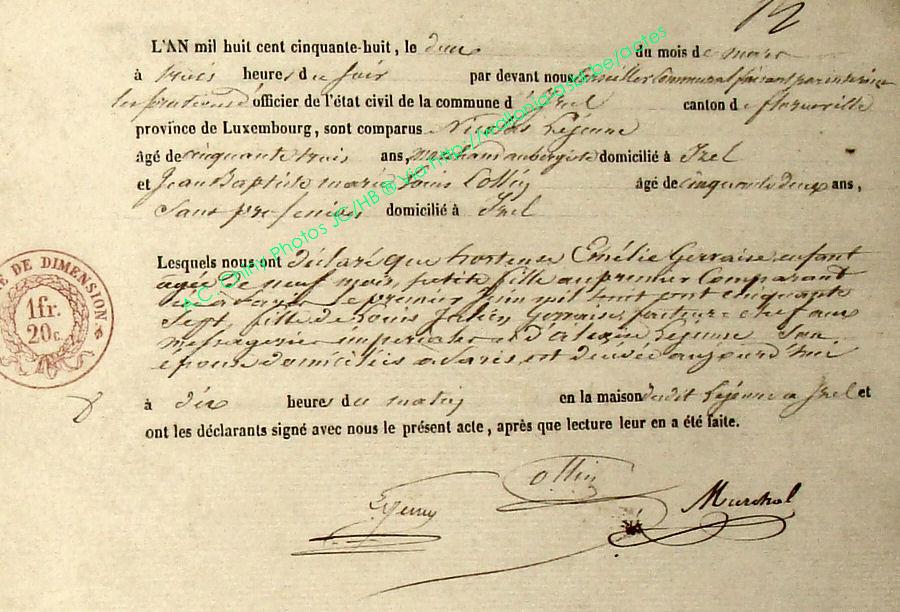 12
L'AN mil huit cent cinquante-huit, le deux du mois de mars
à trois heures du soir par devant nous Conseiller Communal faisant par intérim
les fonctions d'officier de l'état civil de la commune d'Izel canton de florenville
province de Luxembourg, sont comparus Nicolas Lejeune
âgé de cinquante trois ans, marchand aubergiste domicilié à Izel
et Jean Baptiste marie Louis Collin âgé de cinquante deux ans,
Sans profession domicilié à Izel
Lesquels nous ont déclaré que hortense Emélie Gervaise, enfant
agée de neuf mois, petite fille au premier Comparant
née à le premier juin mil huit cent cinquante
Sept, fille de Louis Julien Gervaise, facteur-chef aux
messageries impériales et d' Lejeune Son
épouse domiciliés a Paris, est décédée aujourd'hui
à dix heures du matin en la maison dudit Lejeune a Izel et
ont les déclarants signé avec nous le présent acte, après que lecture leur en a été faite.
Lejeune Collin Marchal
DE DIMENSION
1fr.
20c.
A.C. Chiny Photos JC/HB @ Via http://wallonia.asbl.be/actes